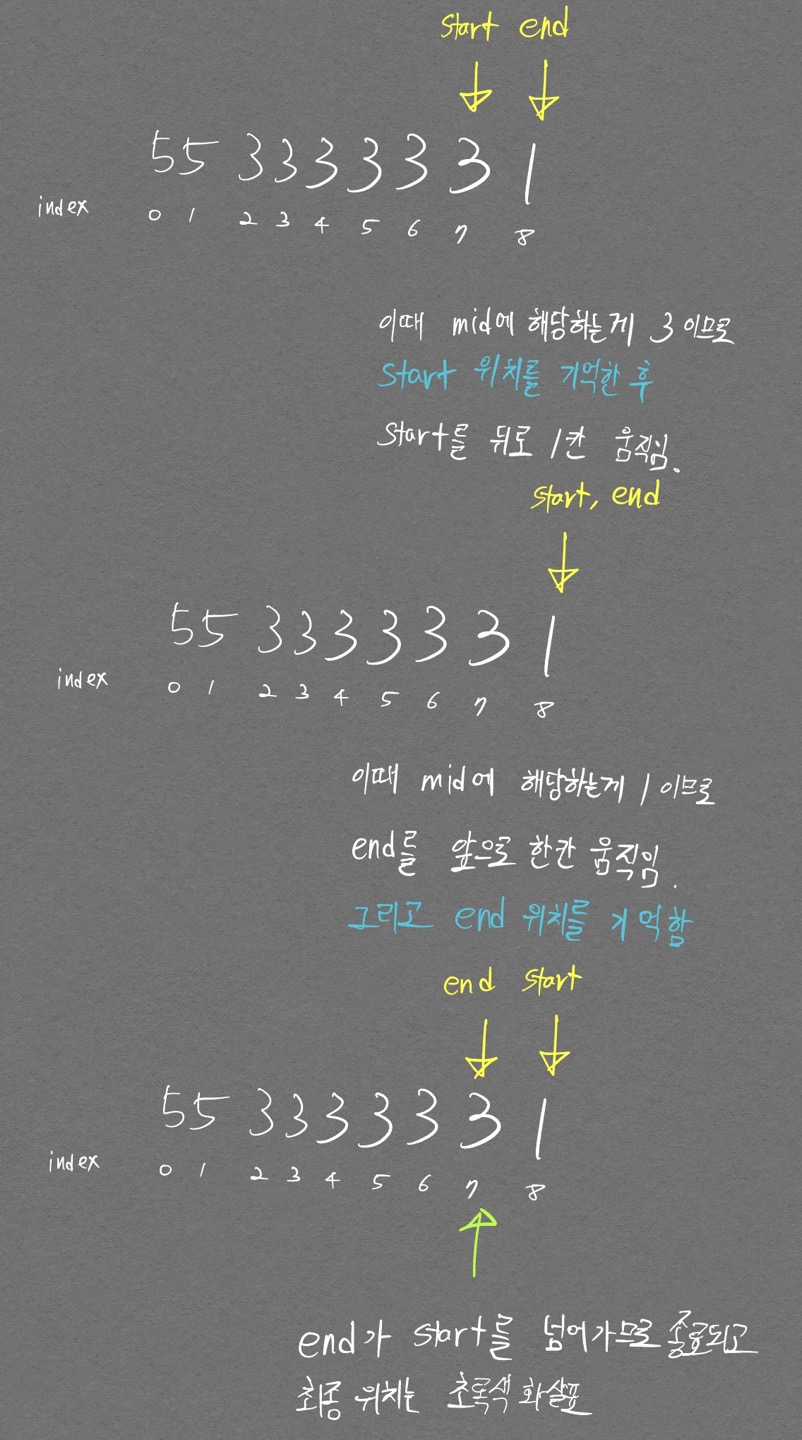 start end
55 333333 1
index 0 1 2 3 4 5 6 7 8
이때 mid에 해당하는게 3 이므로
start 위치를 기억한 후
start를 뒤로 1칸 움직임.
start, end
55 333333 1
index 0 1 2 3 4 5 6 7 8
이때 mid에 해당하는게 1 이므로
end를 앞으로 한칸 움직임.
그리고 end 위치를 기억함
end start
55 333333 1
index 0 1 2 3 4 5 6 7 8
end가 start를 넘어가므로 종료되고
최종 위치는 초록색 화살표